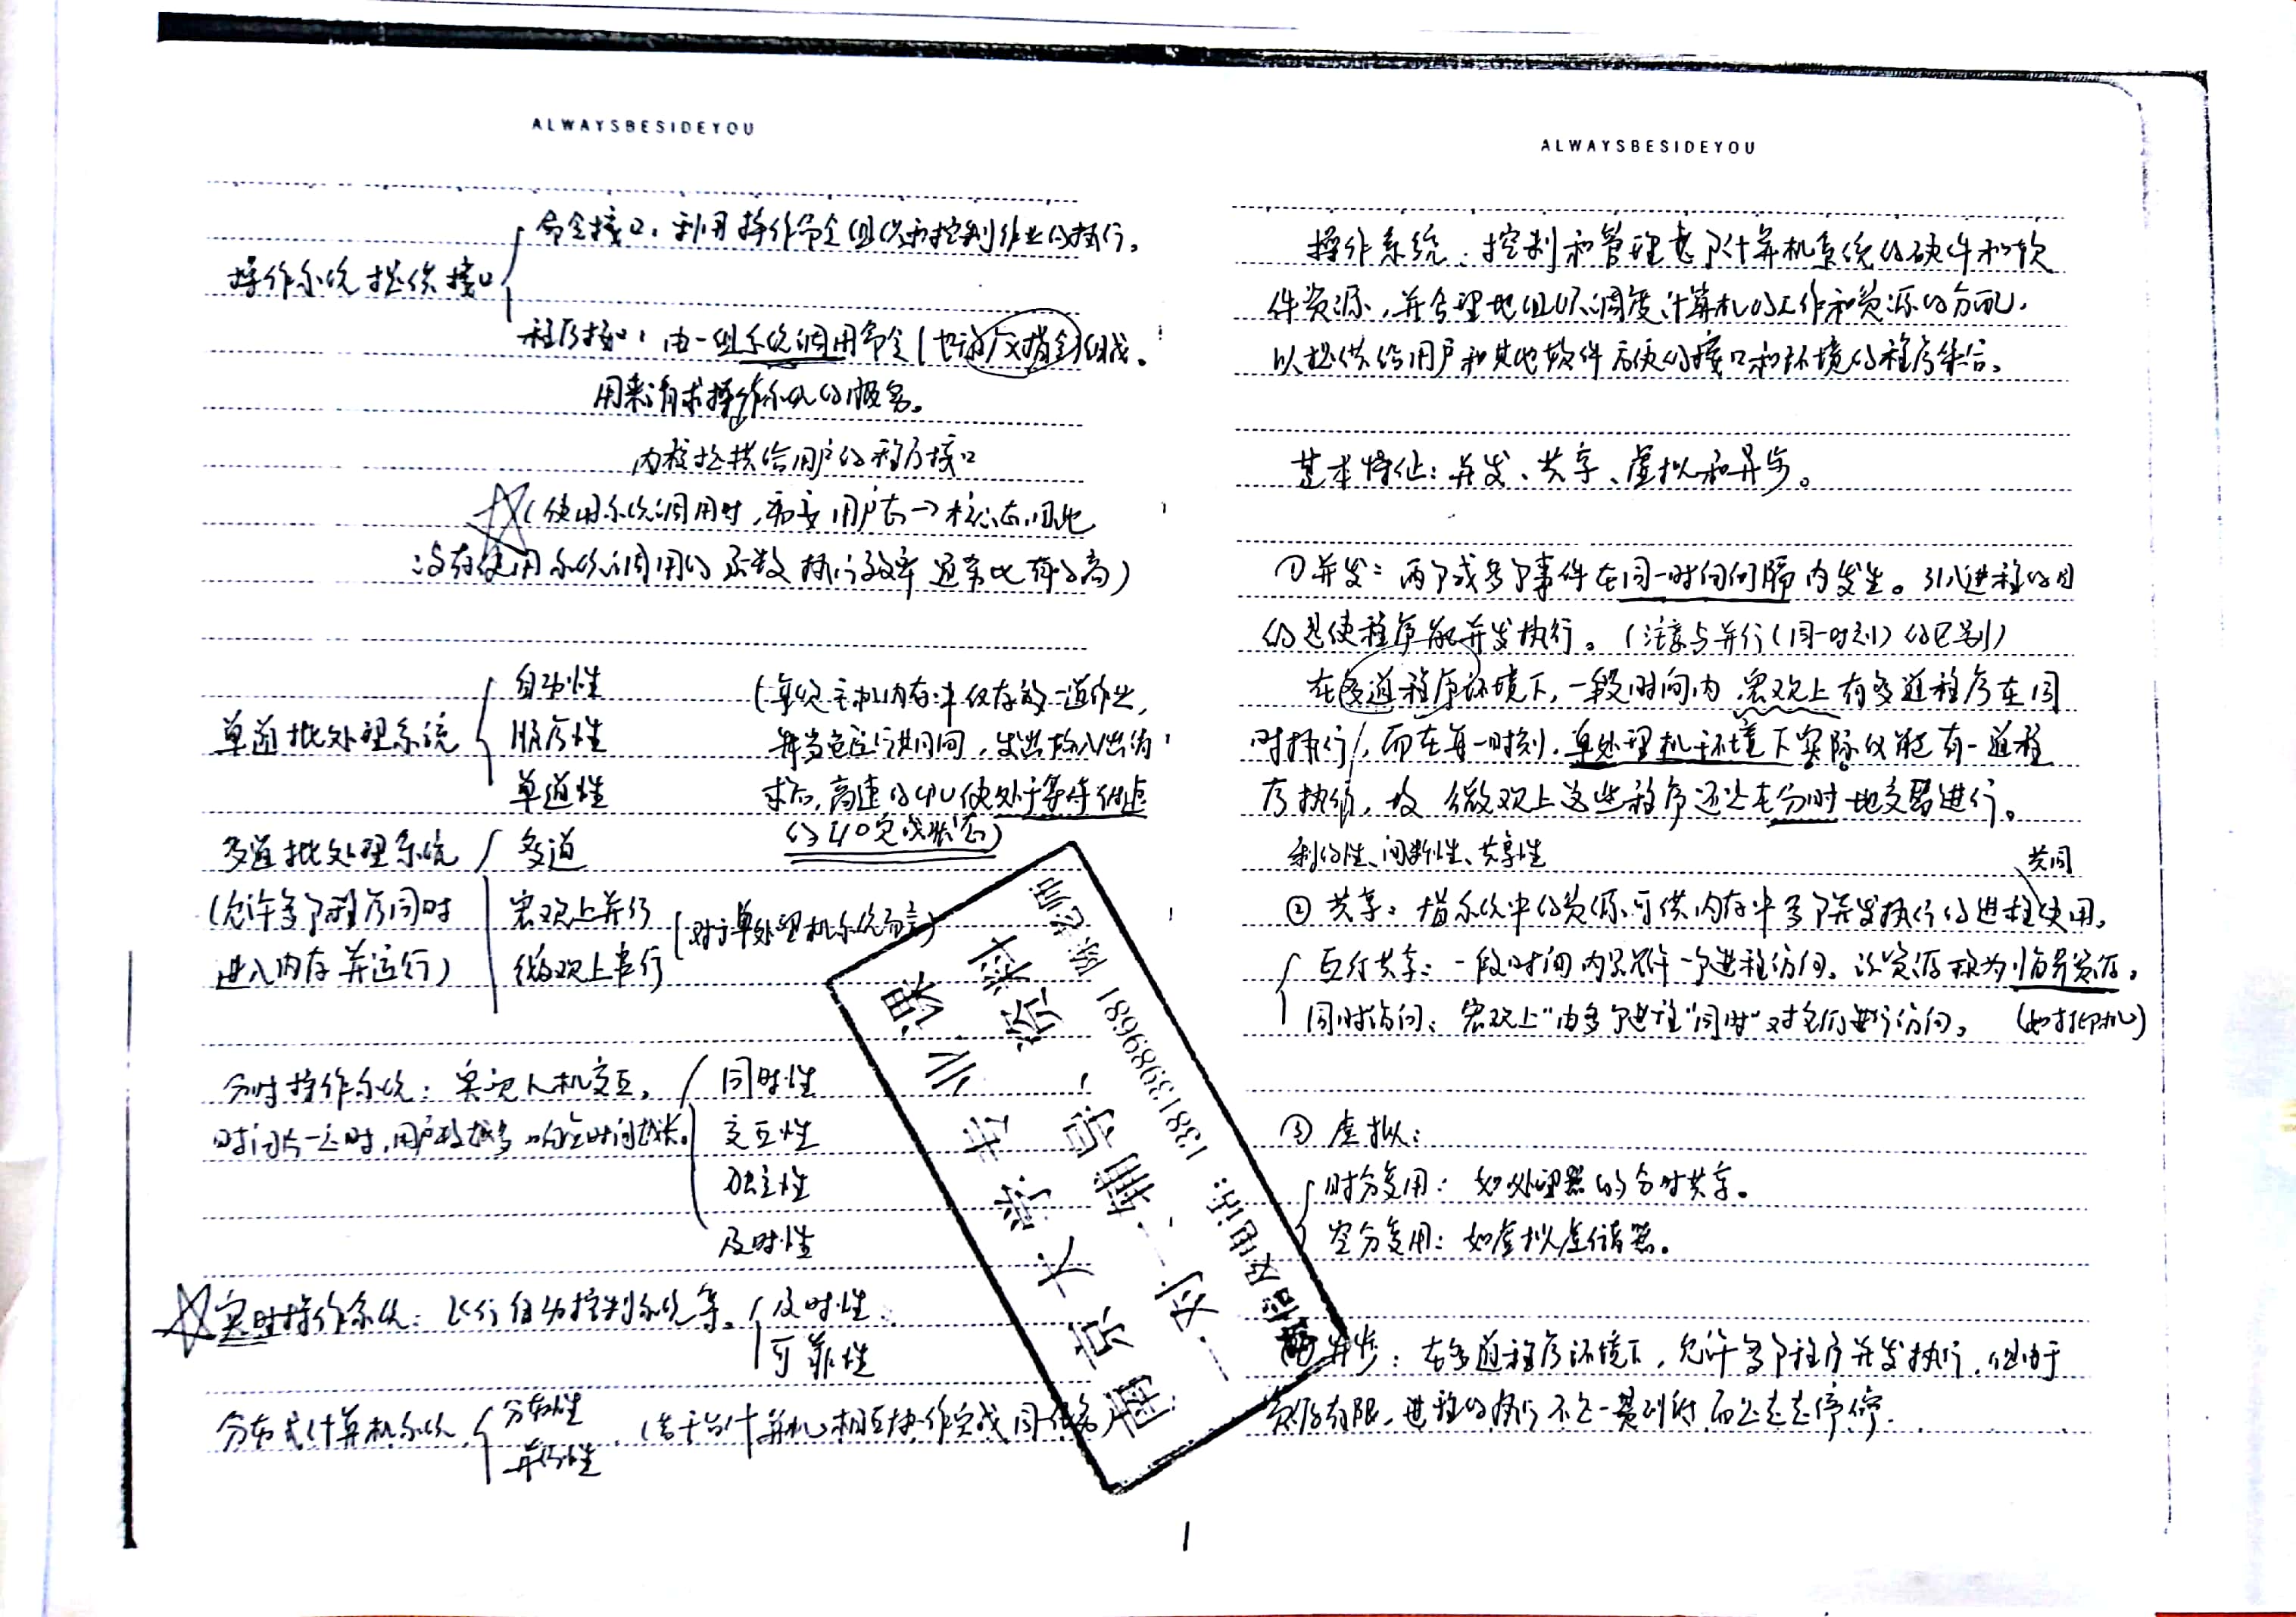 ALWAYSBESIDEYOU
操作系统提供接口
命令接口：利用操作命令组织和控制作业的执行。
程序接口：由一组系统调用命令(也称广义指令)组成。
用来请求操作系统的服务。
内核提供给用户的程序接口
(使用系统调用时，需要用户态→核心态，因此
没有使用系统调用的函数执行效率通常比有的高)
单道批处理系统
自动性
顺序性
单道性
(每次主机内存中仅存放一道作业，
每当它运行期间，发出输入出请
求后，高速的CPU便处于等待低速
的I/O完成状态)
多道批处理系统
(允许多个程序同时
进入内存并运行)
多道
宏观上并行
微观上串行
(对于单处理机系统而言)
分时操作系统：实现人机交互。
时间片一定时，用户数越多，响应时间越长。
同时性
交互性
独立性
及时性
实时操作系统：飞行自动控制系统等。
及时性
可靠性
分布式计算机系统
分布性
并行性
(若干台计算机相互协作完成同一任务)
ALWAYSBESIDEYOU
操作系统：控制和管理整个计算机系统的硬件和软
件资源，并合理地组织调度计算机的工作和资源的分配，
以提供给用户和其他软件方便的接口和环境的程序集合。
基本特征：并发、共享、虚拟和异步。
①并发：两个或多个事件在同一时间间隔内发生。引入进程的目
的是使程序能并发执行。(注意与并行(同一时刻)的区别)
在多道程序环境下，一段时间内，宏观上有多道程序在同
时执行，而在每一时刻，单处理机环境下实际仅能有一道程
序执行，故微观上这些程序还是在分时地交替进行。
制约性、间断性、共享性
共同
②共享：指系统中的资源可供内存中多个并发执行的进程使用。
互斥共享：一段时间内只允许一个进程访问。该资源称为临界资源。
(如打印机)
同时访问：宏观上"由多个进程"同时"对它们进行访问。
③虚拟：
时分复用：如处理器的分时共享。
空分复用：如虚拟存储器。
④异步：在多道程序环境下，允许多个程序并发执行，但由于
资源有限，进程的执行不是一贯到底，而是走走停停.
南京大学专业课
一对一辅导、资料
微信及电话：13813989681 陈老师
1